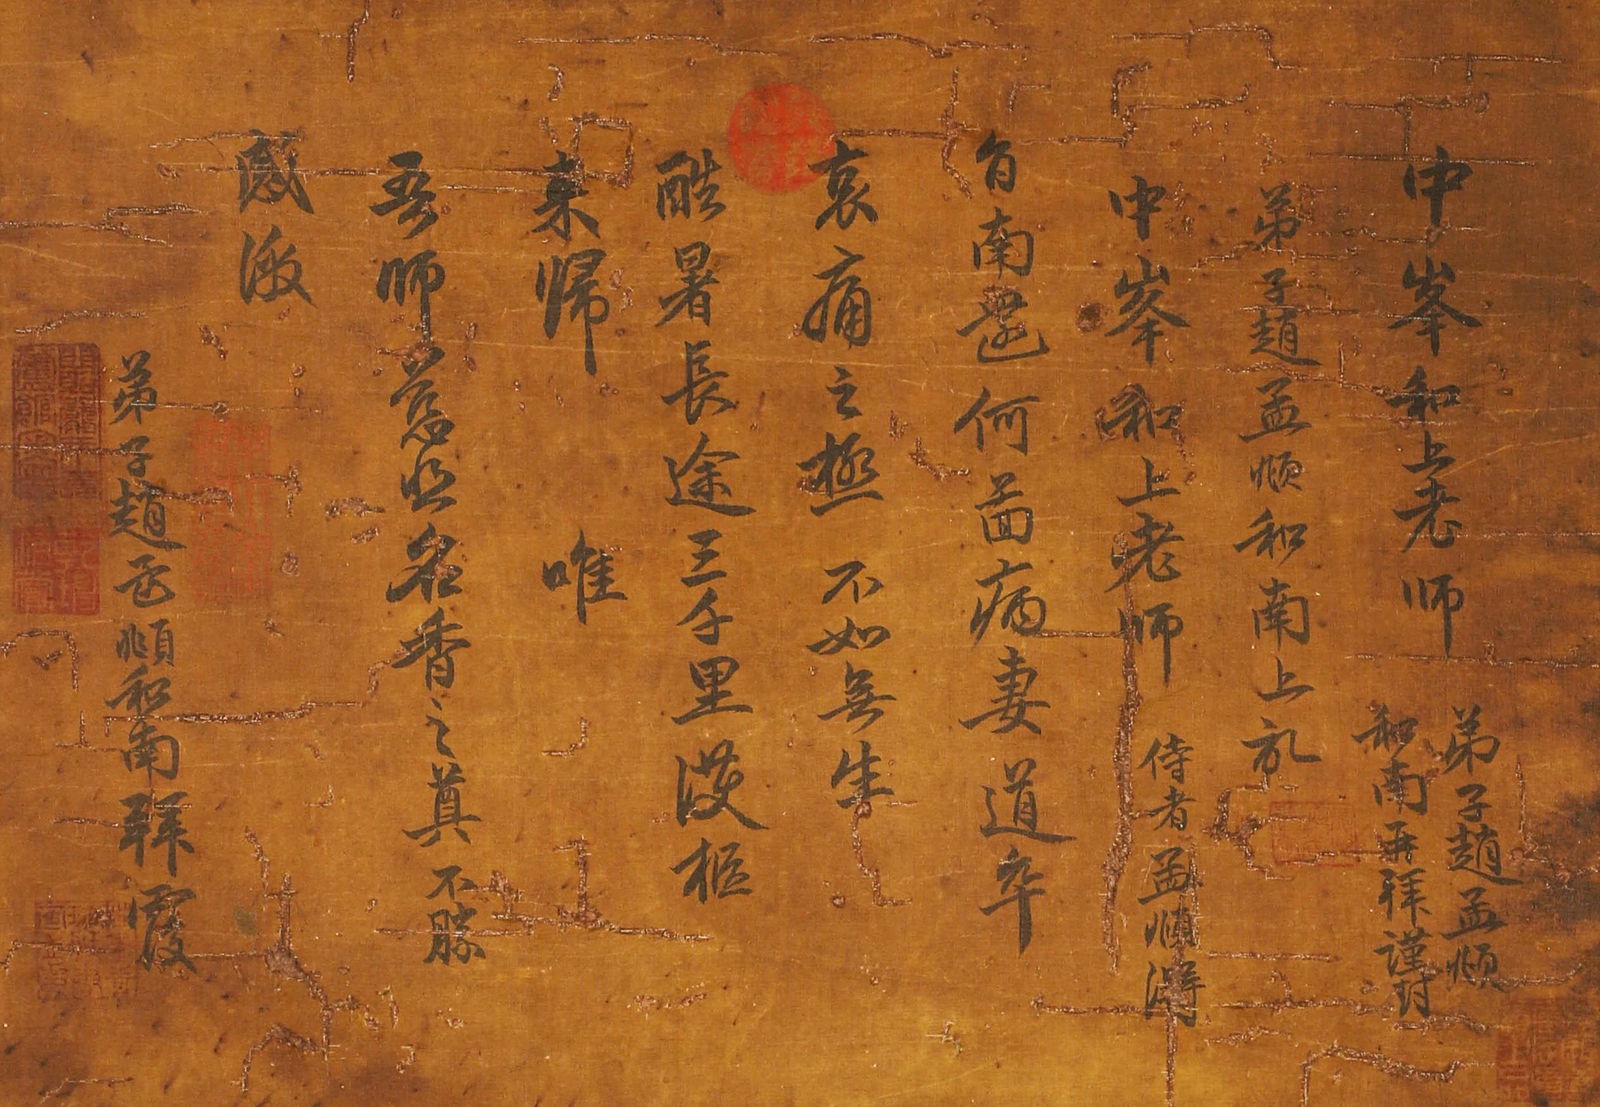 中峯和上老师
弟子趙孟頫
和南再拜謹封
弟子趙孟頫和南上覆
中峯和上老師
侍者孟頫得
旨南還何啚病妻道卒
哀痛之極不如無生
酷暑長途三千里護柩
来歸
唯
吾師慈悲名香之奠不勝
感激
弟子趙孟頫和南拜覆